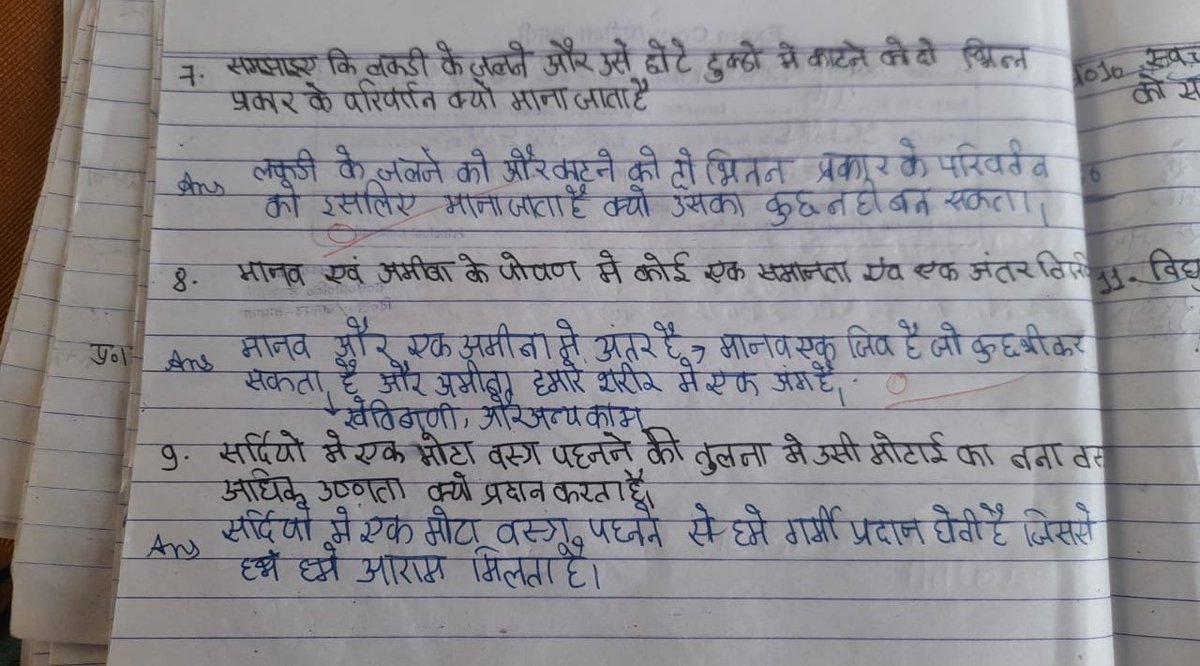 7. समझाइए कि लकडी के जलने और उसे छोटे टुकडो मे काटने को दो भिन्न
प्रकार के परिवर्तन क्यो माना जाता है
Ans लकडी के जलने को और काटने को दो भिनन प्रकार के परिवर्तन
को इसलिए माना जाता है क्यो उसका कुछ नही बन सकता।
8. मानव एवं अमीबा के पोषण मे कोई एक समानता एंव एक अंतर
प्र०1 Ans मानव और एक अमीबा मे अंतर है, मानव एक जिव है जो कुछ भी कर
सकता है और अमीबा हमारे शरीर मे एक अंग है।
और अन्य काम
9. सर्दियो मे एक मोटा वस्त्र पहनने की तुलना मे उसी मोटाई का बना
अधिक उष्णता क्यो प्रदान करता है।
Ans सर्दियो मे एक मोटा वस्त्र पहनने से हमे गर्मी प्रदान होती है जिससे
हमे आराम मिलता है।
को
11. विद्यु